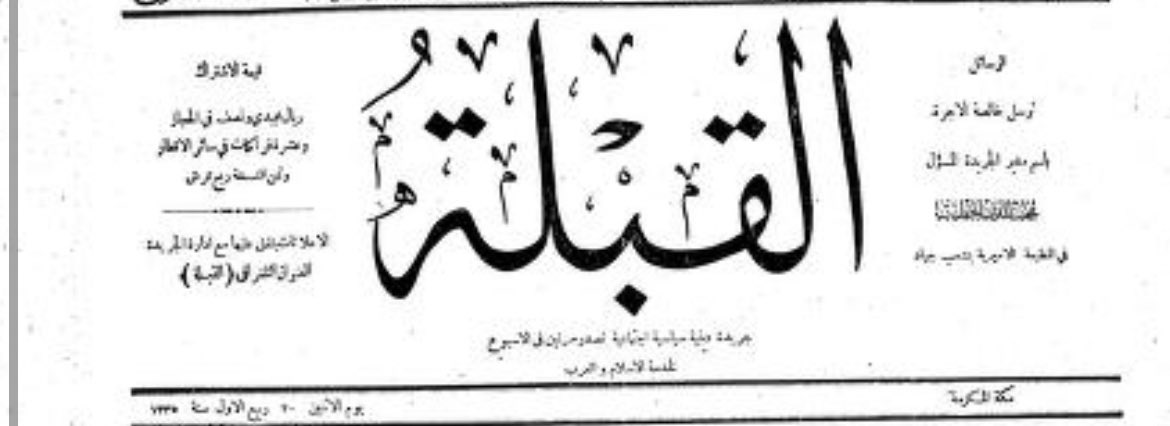 الرسائل
ترسل خالصة الاجرة
باسم مدير الجريدة المسؤل
في المطبعة الاميرية بشعب جياد
القبلة
جريدة دينية سياسية اجتماعية تصدر مرتين في الاسبوع
لخدمة الاسلام والعرب
قيمة الاشتراك
ريال مجيدي ونصف في الحجاز
وعشرة فرنكات في سائر الاقطار
وثمن النسخة ربع قرش
الاعلانات يتفق عليها مع ادارة الجريدة
العنوان التلغرافي ( القبلة )
مكة المكرمة
يوم الاثنين ٢٠ ربيع الاول سنة ١٣٣٥